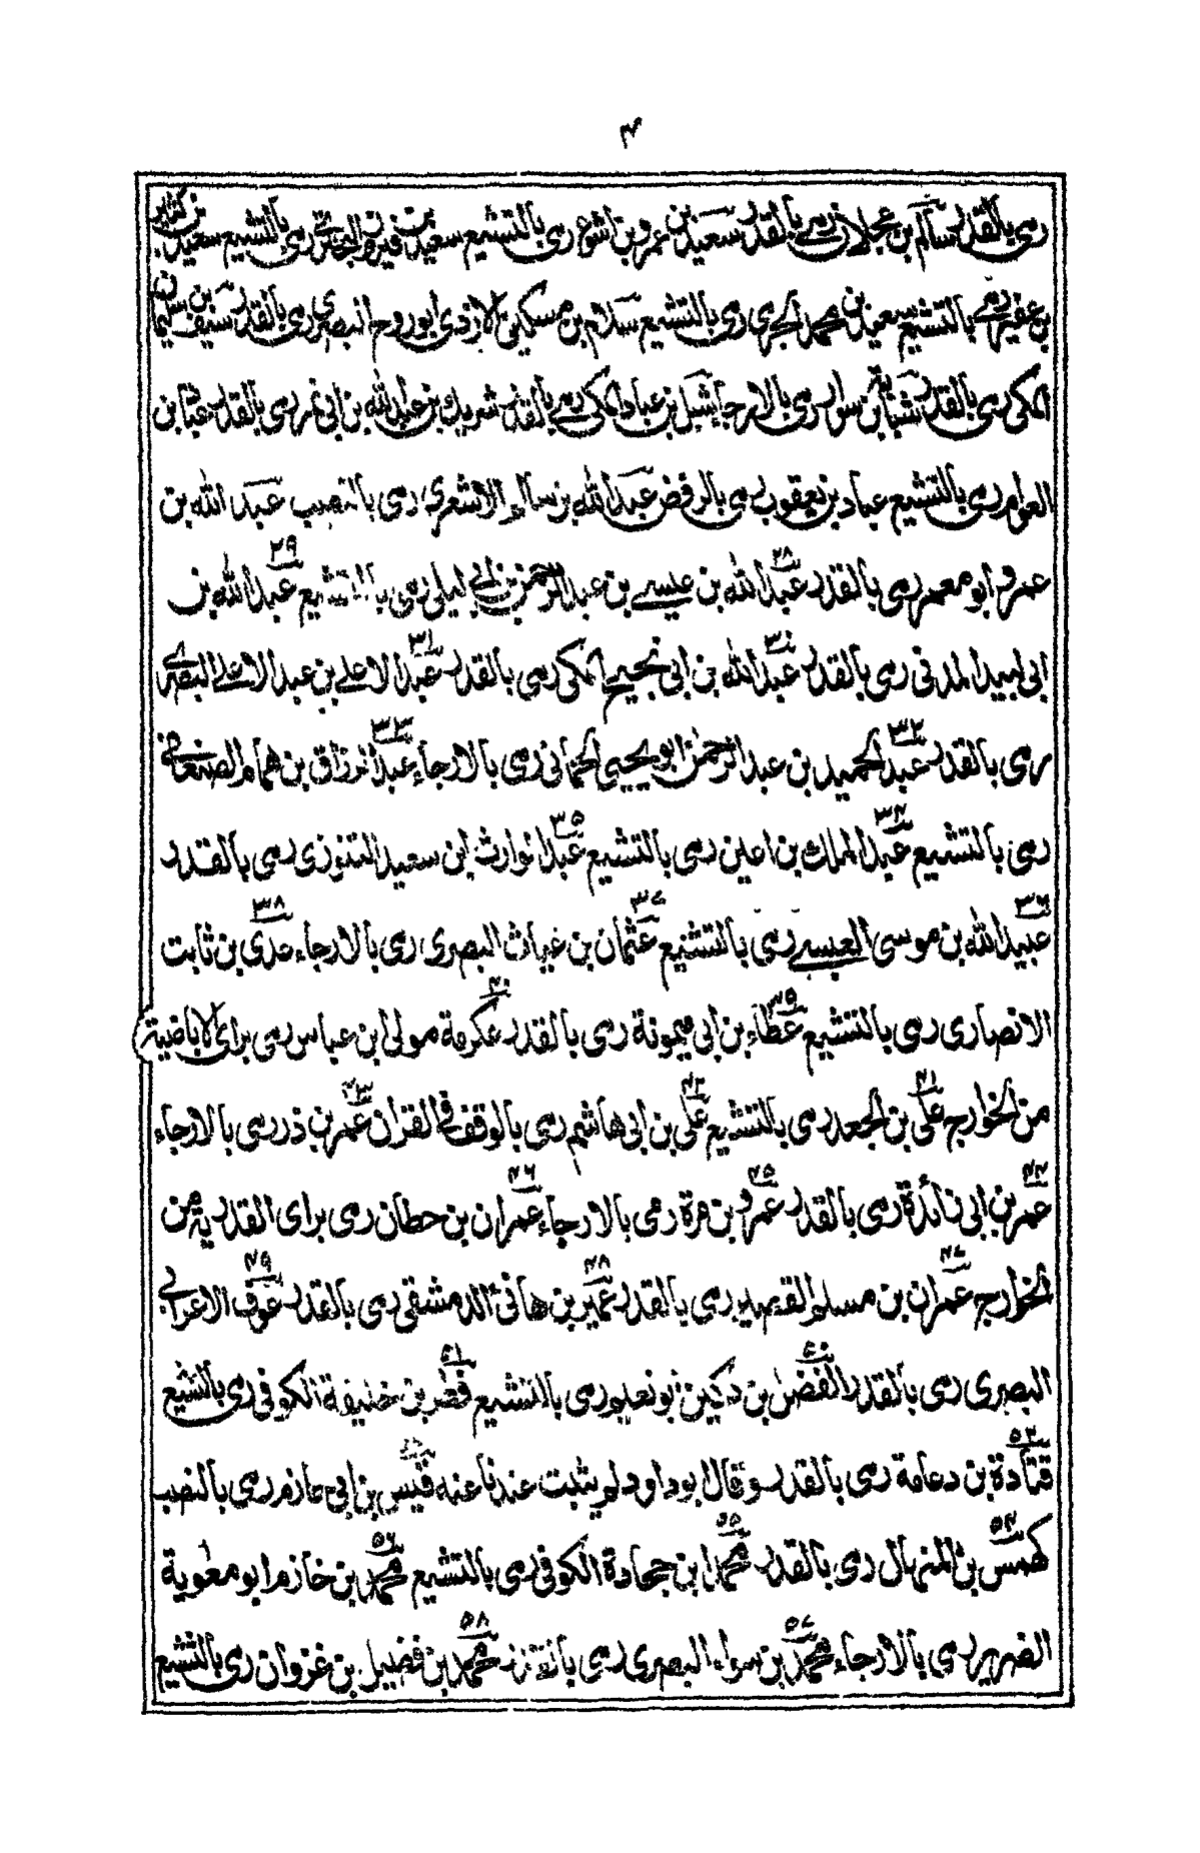 ۴
رمي بالقدر سالم بن عجلان رمي بالقدر سعيد بن عمرو بن اشوع رمي بالتشيع سعيد بن فيروز البختري رمي بالتشيع سعيد بن كثير
بن عفير رمي بالتشيع سعيد بن محمد الجرمي رمي بالتشيع سلام بن مسكين الازدي ابو روح البصري رمي بالقدر سيف بن سليمان
المكي رمي بالقدر شبابة بن سوار رمي بالارجاء شبل بن عباد المكي رمي بالقدر شريك بن عبد الله بن ابي نمر رمي بالقدر عباد بن
العوام رمي بالتشيع عباد بن يعقوب رمي بالرفض عبد الله بن سالم الاشعري رمي بالنصب عبد الله بن
عمرو ابو معمر رمي بالقدر ۲۸ عبد الله بن عيسى بن عبد الرحمن بن ابي ليلى رمي بالتشيع ۲۹ عبد الله بن
ابي لبيد المدني رمي بالقدر ۳۰ عبد الله بن ابي نجيح المكي رمي بالقدر ۳۱ عبد الاعلى بن عبد الاعلى البصري
رمي بالقدر ۳۲ عبد الحميد بن عبد الرحمن ابو يحيى الحماني رمي بالارجاء ۳۳ عبد الرزاق بن همام الصنعاني
رمي بالتشيع ۳۴ عبد الملك بن اعين رمي بالتشيع ۳۵ عبد الوارث ابن سعيد التنوري رمي بالقدر
۳۶ عبيد الله بن موسى العبسي رمي بالتشيع ۳۷ عثمان بن غياث البصري رمي بالارجاء ۳۸ عدي بن ثابت
الانصاري رمي بالتشيع ۳۵ عطاء بن ابي ميمونة رمي بالقدر ۴۰ عكرمة مولى ابن عباس رمي براي الاباضية
من الخوارج ۴۱ علي بن الجعد رمي بالتشيع ۴۲ علي بن ابي هاشم رمي بالوقف في القران ۴۳ عمر بن ذر رمي بالارجاء
۴۴ عمر بن ابي زائدة رمي بالقدر ۴۵ عمرو بن مرة رمي بالارجاء ۴۶ عمران بن حطان رمي براي القدرية من
الخوارج ۴۷ عمران بن مسلم القصير رمي بالقدر ۴۸ عمير بن هانئ الدمشقي رمي بالقدر ۴۹ عوف الاعرابي
البصري رمي بالقدر ۵۰ الفضل بن دكين ابو نعيم رمي بالتشيع ۵۱ فطر بن خليفة الكوفي رمي بالتشيع
۵۲ قتادة بن دعامة رمي بالقدر وقال ابو داود لم يثبت عندنا عنه قيس بن ابي حازم رمي بالنصب
۵۴ كهمس بن المنهال رمي بالقدر ۵۵ محمد ابن جحادة الكوفي رمي بالتشيع ۵۶ محمد بن خازم ابو معوية
الضرير رمي بالارجاء ۵۷ محمد بن سواء البصري رمي بالقدر ۵۸ محمد بن فضيل بن غزوان رمي بالتشيع